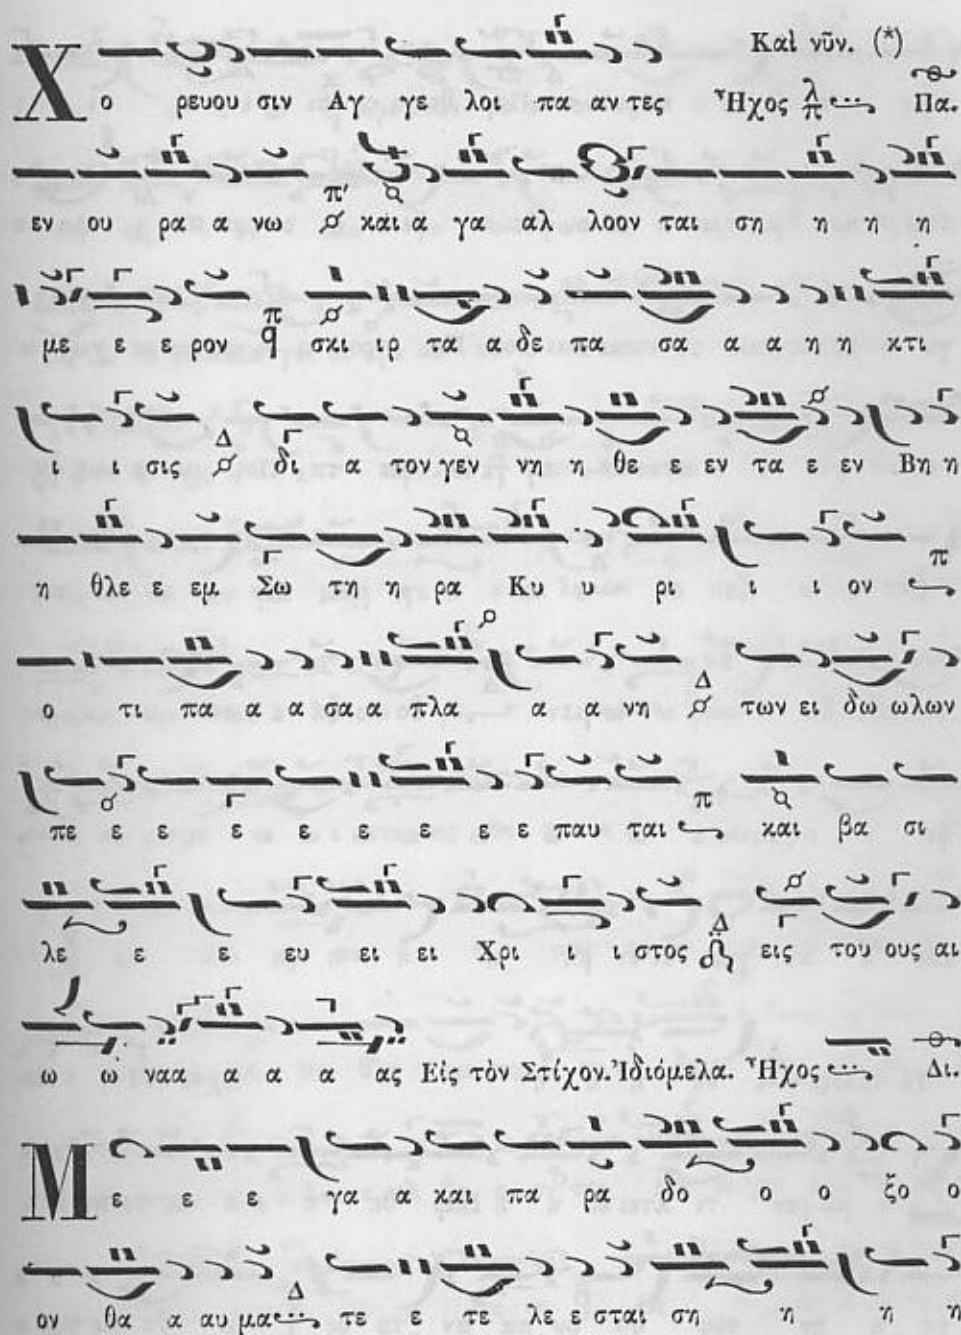 Καὶ νῦν. (*)
Χο ρευου σιν Αγ γε λοι πα αν τες Ἦχος λ π Πα.
εν ου ρα α νω π' και α γα αλ λοον ται ση η η η
με ε ε ρον π q σκι ιρ τα α δε πα σα α α η η κτι
ι ι σις Δ δι α τον γεν νη η θε ε εν τα ε εν Βη η
η θλε ε εμ Σω τη η ρα Κυ υ ρι ι ι ον π
ο τι πα α α σα α πλα α α νη Δ των ει δω ωλων
πε ε ε ε ε ε ε ε ε παυ ται π και βα σι
λε ε ε ευ ει ει Χρι ι ι στος Δ εις του ους αι
ω ω ναα α α α ας Εἰς τὸν Στίχον. Ἰδιόμελα. Ἦχος Δι.
Με ε ε γα α και πα ρα δο ο ο ξο ο
ον θα α αυ μα Δ τε ε τε λε ε σται ση η η η